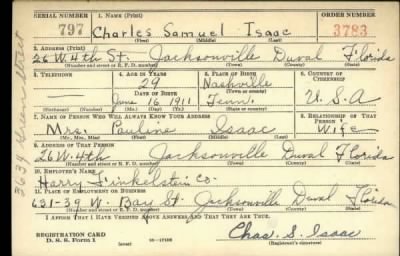 SERIAL NUMBER 1. NAME (Print) ORDER NUMBER
797 Charles Samuel Isaac 3783
(First) (Middle) (Last)
2. ADDRESS (Print)
26 W. 4th St. Jacksonville Duval Florida
(Number and street or R. F. D. number) (Town) (County) (State)
3. TELEPHONE 4. AGE IN YEARS 5. PLACE OF BIRTH 6. COUNTRY OF CITIZENSHIP
— 29 Nashville
DATE OF BIRTH (Town or county)
June 16 1911 Tenn. U.S.A
(Exchange) (Number) (Mo.) (Day) (Yr.) (State or country)
7. NAME OF PERSON WHO WILL ALWAYS KNOW YOUR ADDRESS 8. RELATIONSHIP OF THAT PERSON
Mrs. Pauline Isaac Wife
(Mr., Mrs., Miss) (First) (Middle) (Last)
9. ADDRESS OF THAT PERSON
26 W. 4th Jacksonville Duval Florida
(Number and street or R. F. D. number) (Town) (County) (State)
10. EMPLOYER'S NAME
Harry Finkelstein Co.
11. PLACE OF EMPLOYMENT OR BUSINESS
631-39 W. Bay St. Jacksonville Duval Florida
(Number and street or R. F. D. number) (Town) (County) (State)
I AFFIRM THAT I HAVE VERIFIED ABOVE ANSWERS AND THAT THEY ARE TRUE.
REGISTRATION CARD
D. S. S. Form 1 Chas. S. Isaac
(Registrant's signature)
Street